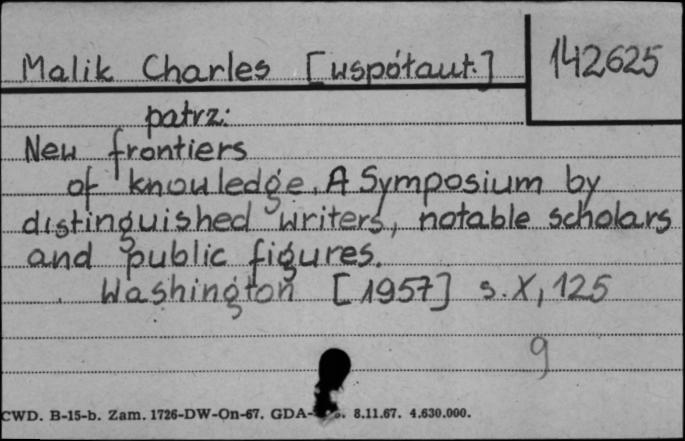 Malik Charles [współaut.] 142625
patrz:
New frontiers
of knowledge. A Symposium by
distinguished writers, notable scholars
and public figures.
Washington [1957] s. X, 125
9
CWD. B-15-b. Zam. 1726-DW-On-67. GDA- 8.11.67. 4.630.000.